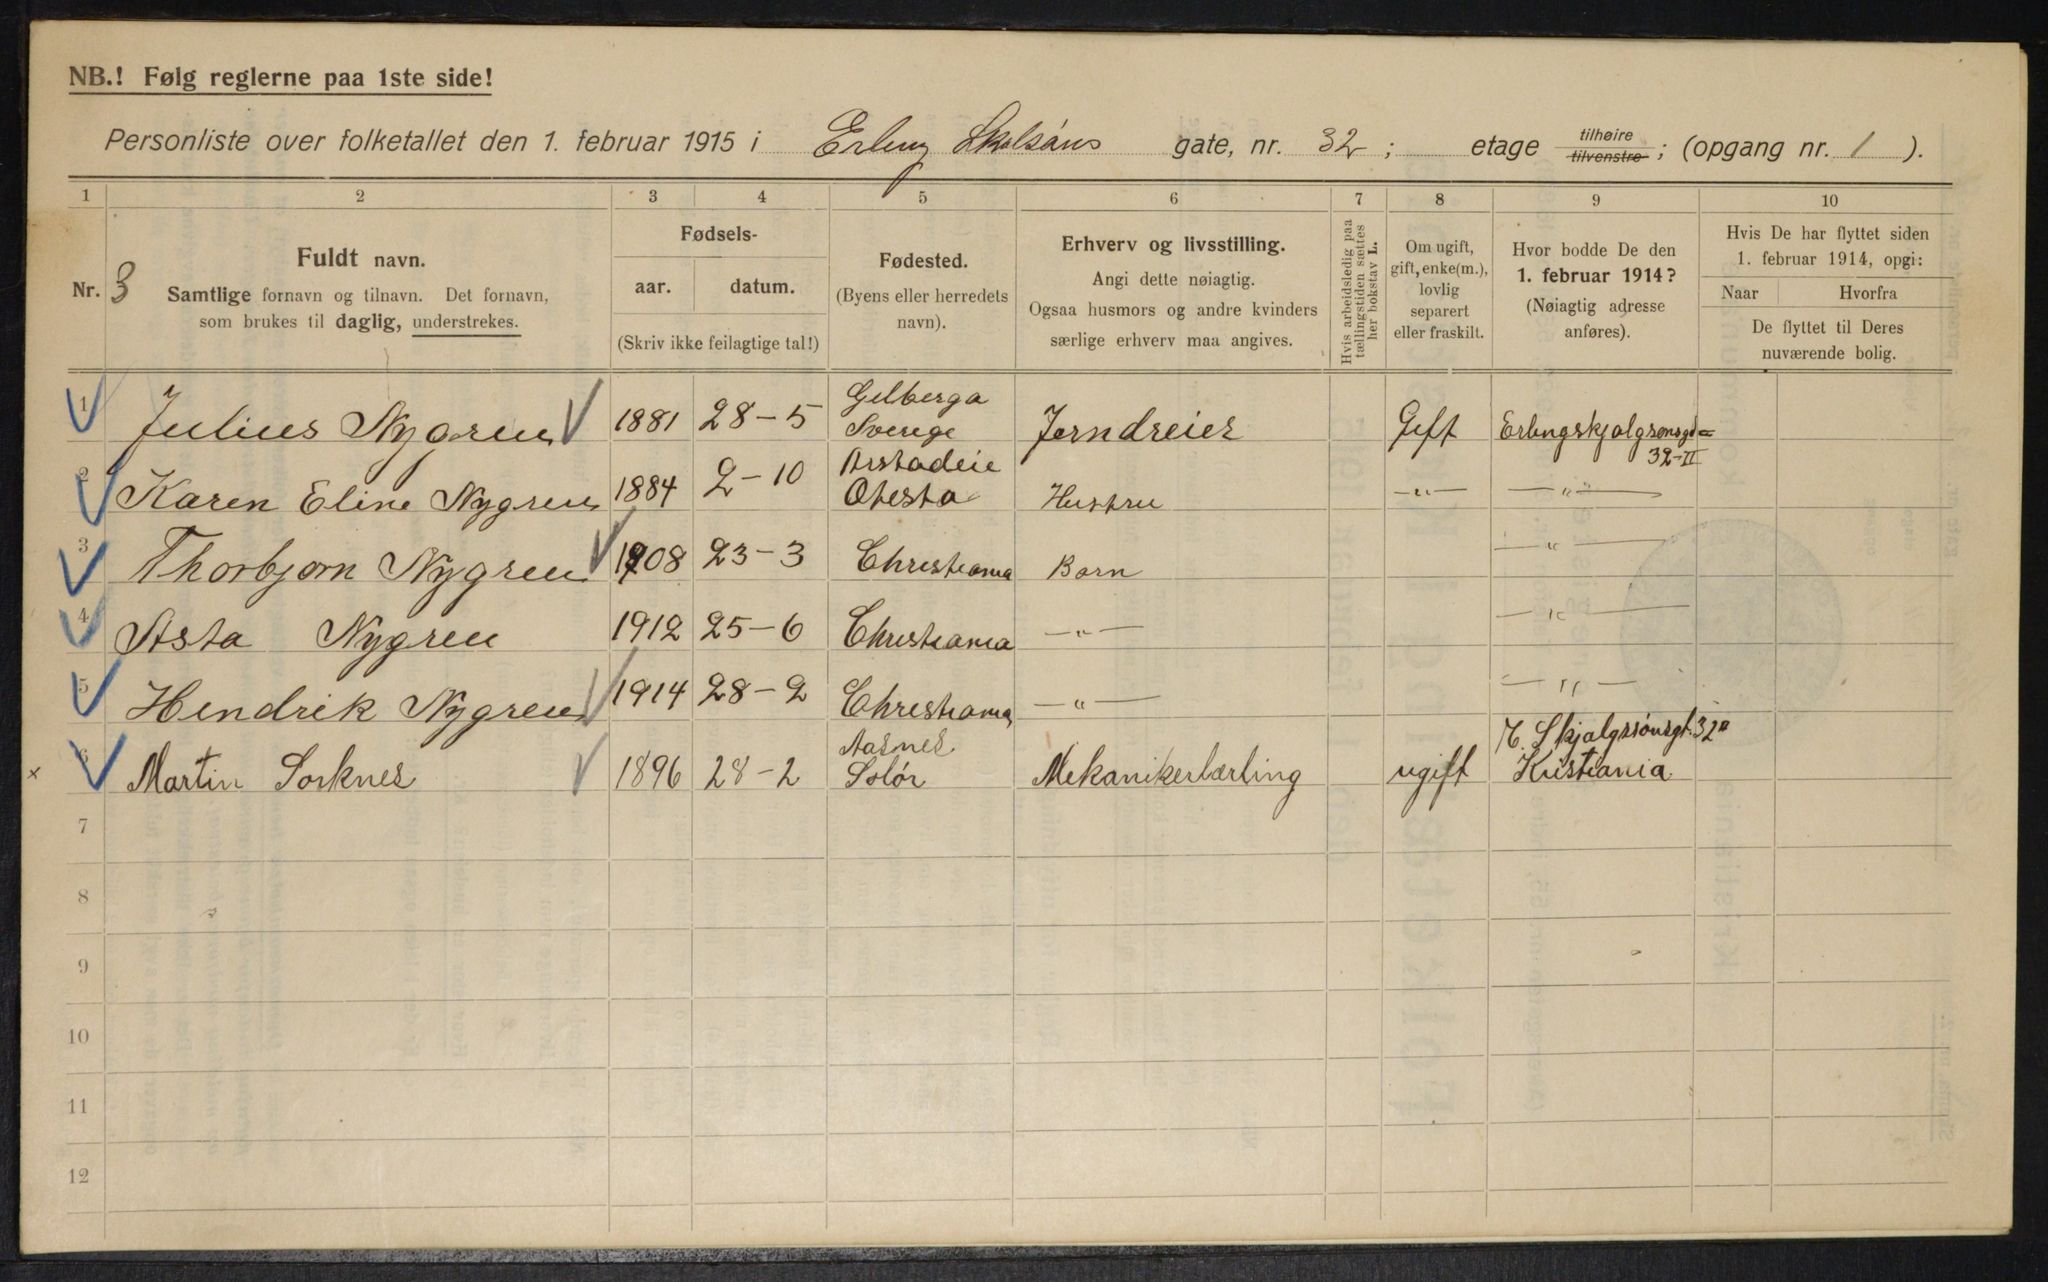 NB.! Følg reglerne paa 1ste side!
Personliste over folketallet den 1. februar 1915 i Erling Skolsóns gate, nr. 32; etage tilhøire tilvenstre; (opgang nr. 1).
1 2 3 4 5 6 7 8 9 10
Nr. 3
Fuldt navn.
Samtlige fornavn og tilnavn. Det fornavn,
som brukes til daglig, understrekes.
Fødsels-
aar. datum.
(Skriv ikke feilagtige tal!)
Fødested.
(Byens eller herredets
navn).
Erhverv og livsstilling.
Angi dette nøiagtig.
Ogsaa husmors og andre kvinders
særlige erhverv maa angives.
Hvis arbeidsledig paa
tællingstiden sættes
her bokstav L.
Om ugift,
gift, enke(m.),
lovlig
separert
eller fraskilt.
Hvor bodde De den
1. februar 1914?
(Nøiagtig adresse
anføres).
Hvis De har flyttet siden
1. februar 1914, opgi:
Naar Hvorfra
De flyttet til Deres
nuværende bolig.
1 Julius Nygren 1881 28-5 Gelberga Sverege Jerndreier Gift Erlingskjalgsønsgd= 32-II
2 Karen Eline Nygren 1884 2-10 Otesta Hustru -"- -"-
3 Thorbjørn Nygren 1908 23-3 Christiania Barn -"-
4 Asta Nygren 1912 25-6 Christiania -"- -"-
5 Hendrik Nygren 1914 28-2 Christiania -"- -"-
x 6 Martin Sorknes 1896 28-2 Aasnes Solør Mekanikerlærling ugift E. Skjalgssónsgt. 32 II Kristiania
7
8
9
10
11
12